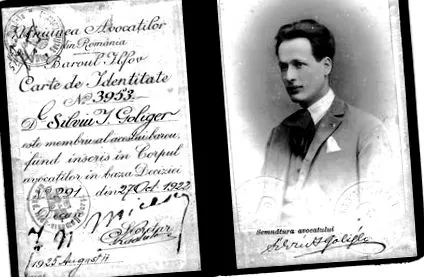 Uniunea Avocaților
din România
Baroul Ilfov
Carte de Identitate
No 3953
Dl Silviu I Goliger
este membru al acestui barou,
fiind inscris in Corpul
avocatilor in baza Deciziei
291 din 27 Oct. 1922
Decan
Secretar
1925 August 11
Semnătura avocatului